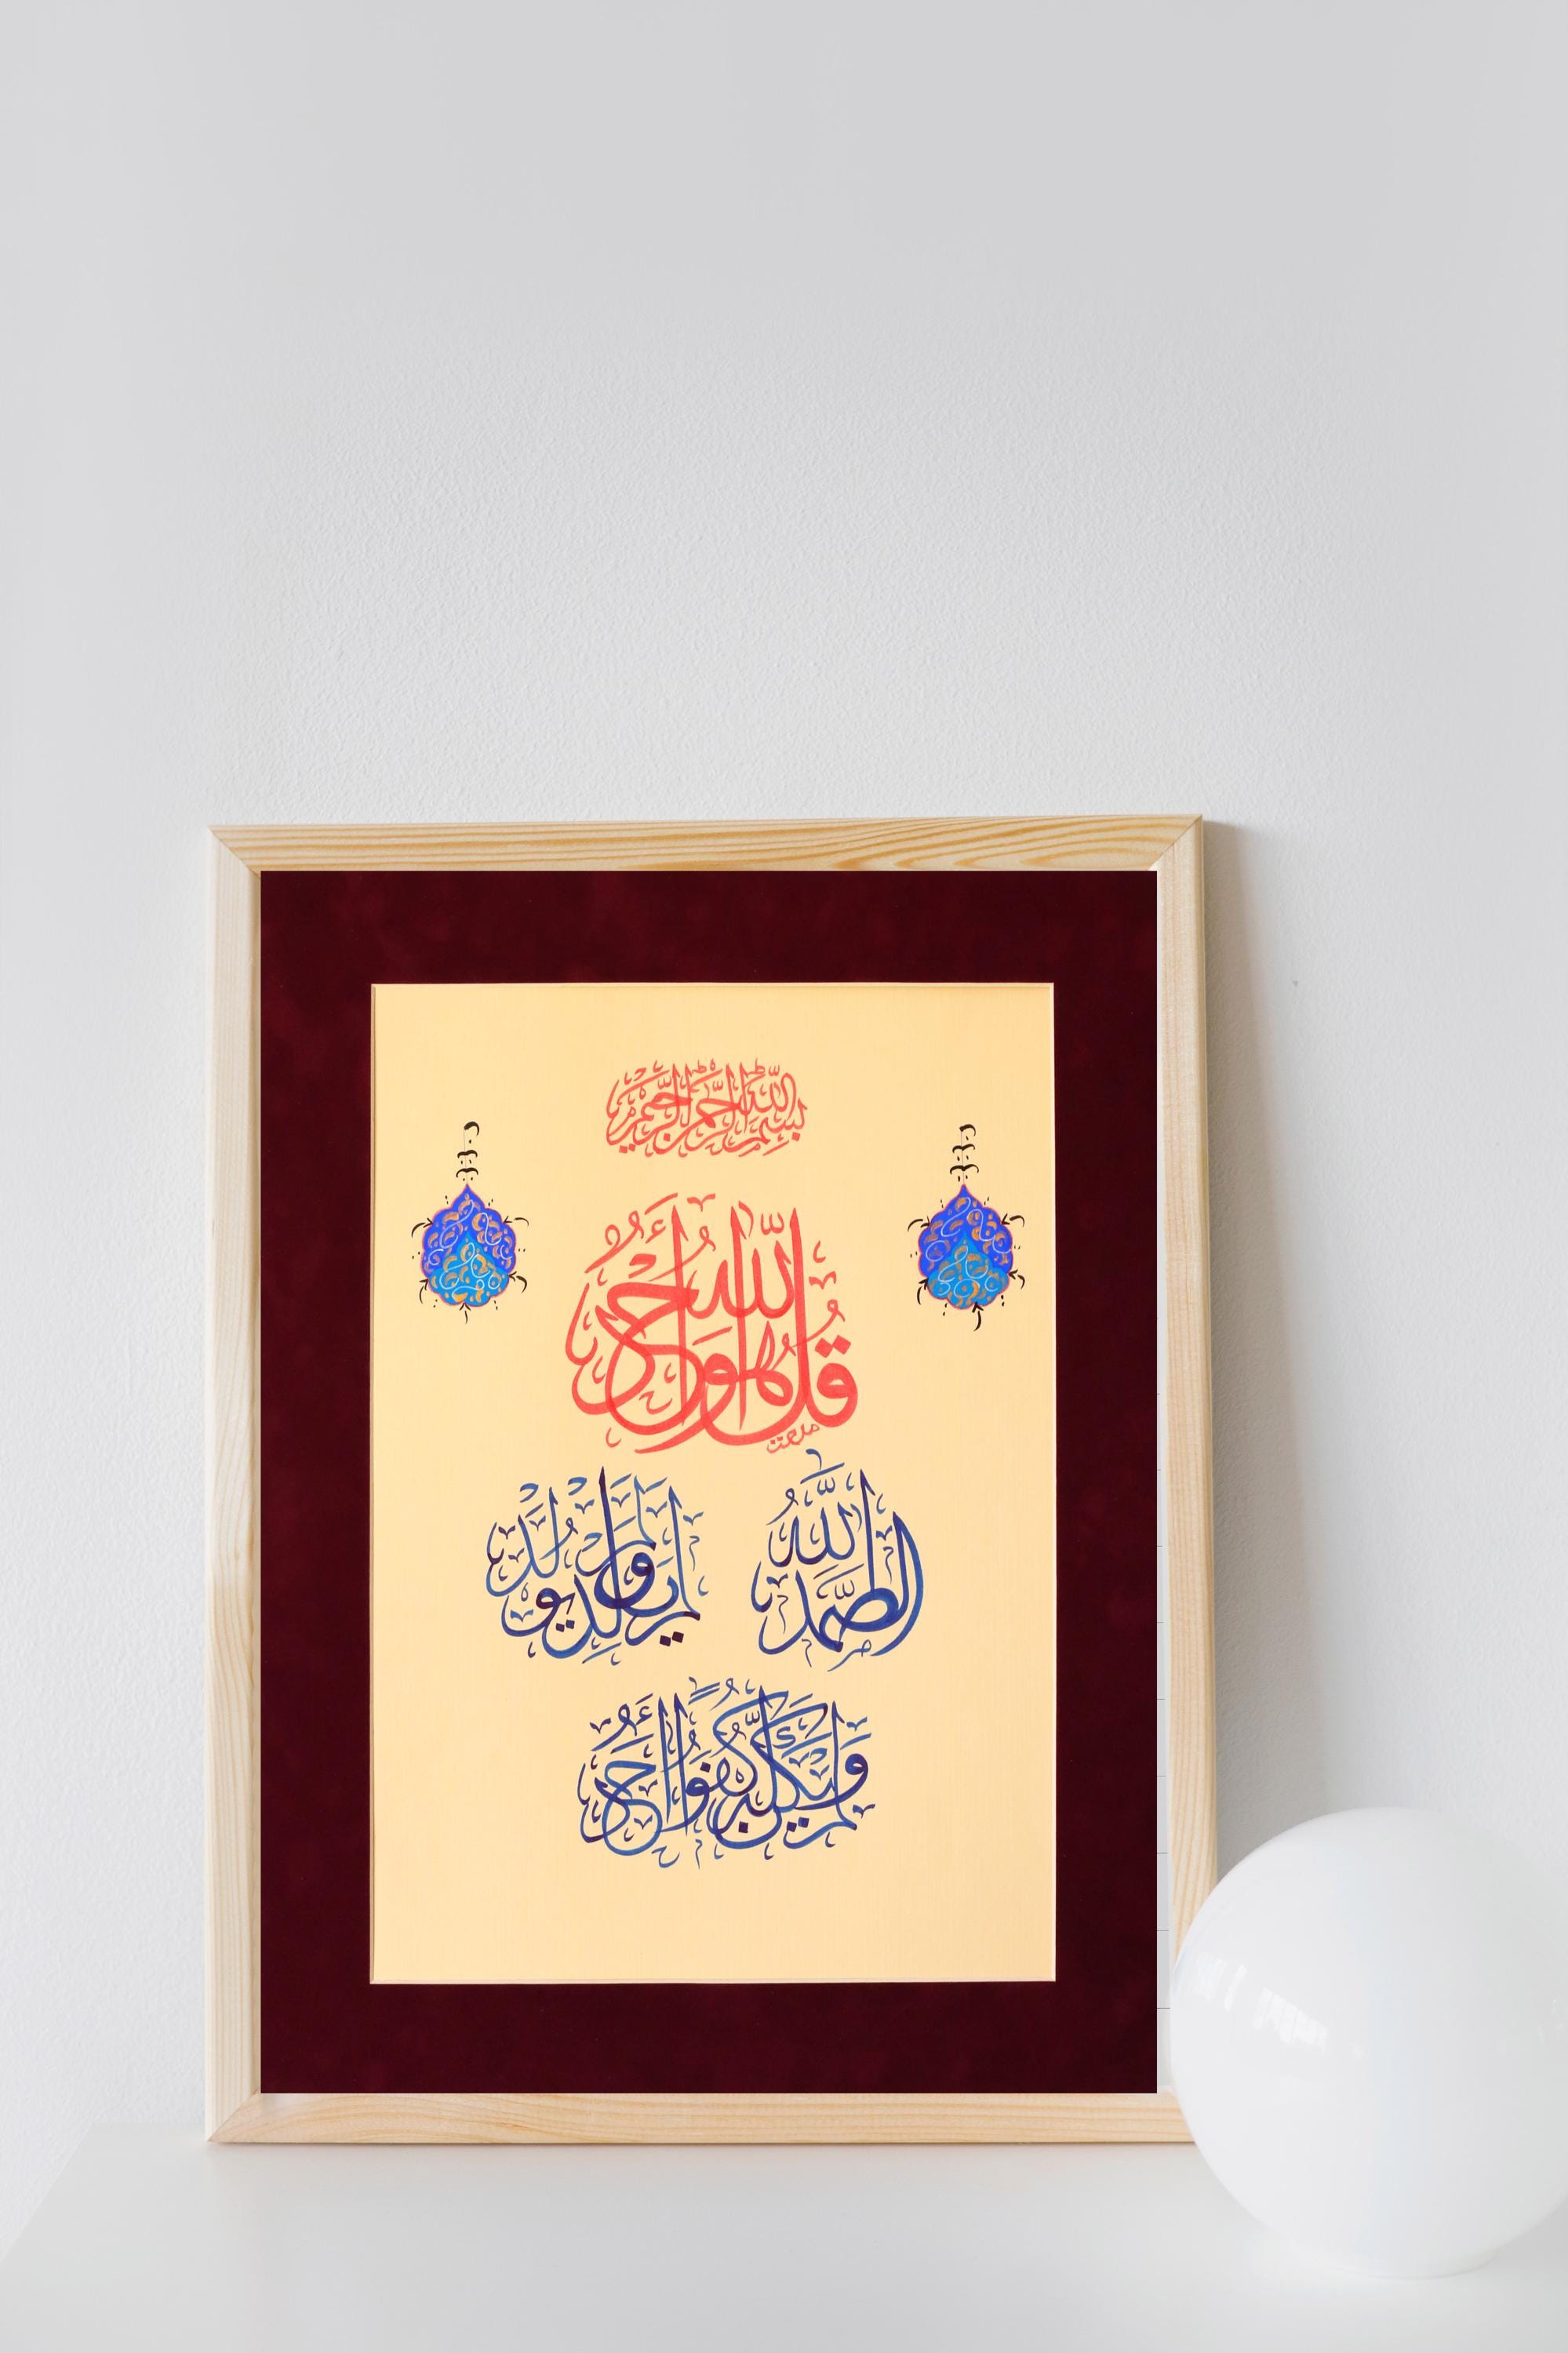 بِسْمِ اللَّهِ الرَّحْمَٰنِ الرَّحِيمِ
قُلْ هُوَ اللَّهُ أَحَدٌ
اللَّهُ الصَّمَدُ
لَمْ يَلِدْ وَلَمْ يُولَدْ
وَلَمْ يَكُنْ لَهُ كُفُوًا أَحَدٌ